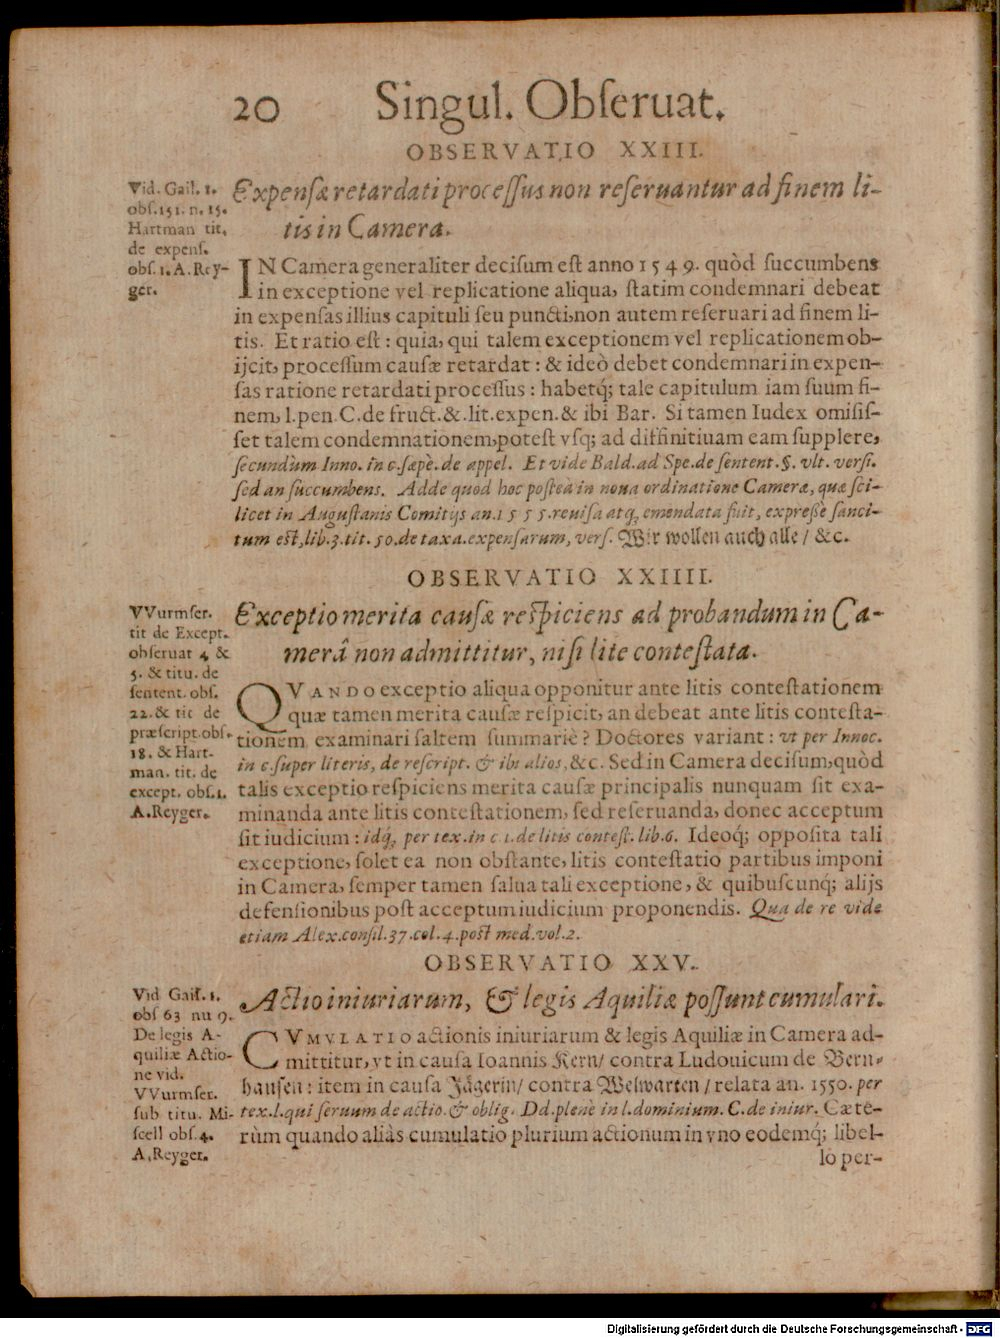 20 Singul. Obſeruat.
OBSERVATIO XXIII.
Vid. Gail. 1.
obſ. 151. n. 15.
Hartman tit.
de expenſ.
obſ. 1. A. Rey-
ger.
Expenſæ retardati proceſſus non reſeruantur ad finem li-
tis in Camera.
IN Camera generaliter deciſum eſt anno 1549. quòd ſuccumbens
in exceptione vel replicatione aliqua, ſtatim condemnari debeat
in expenſas illius capituli ſeu puncti, non autem reſeruari ad finem li-
tis. Et ratio eſt: quia, qui talem exceptionem vel replicationem ob-
ijcit, proceſſum cauſæ retardat: & ideò debet condemnari in expen-
ſas ratione retardati proceſſus: habetq́; tale capitulum iam ſuum fi-
nem, l. pen. C. de fruct. & lit. expen. & ibi Bar. Si tamen Iudex omiſiſ-
ſet talem condemnationem, poteſt vſq; ad diffinitiuam eam ſupplere,
ſecundùm Inno. in c. ſæpè. de appel. Et vide Bald. ad Spe. de ſentent. §. vlt. verſi.
ſed an ſuccumbens. Adde quod hoc poſteà in noua ordinatione Cameræ, quæ ſci-
licet in Auguſtanis Comitijs an. 1555. reuiſa atq́; emendata fuit, expreßè ſanci-
tum eſt, lib. 3. tit. 50. de taxa. expenſarum, verſ. Wir wollen auch alle / &c.
OBSERVATIO XXIIII.
VVurmſer.
tit de Except.
obſeruat 4. &
5. & titu. de
ſentent. obſ.
22. & tit de
præſcript. obſ.
18. & Hart-
man. tit. de
except. obſ. 1.
A. Reyger.
Exceptio merita cauſæ reſpiciens ad probandum in Ca-
merâ non admittitur, niſi lite conteſtata.
QVANDO exceptio aliqua opponitur ante litis conteſtationem
quæ tamen merita cauſæ reſpicit, an debeat ante litis conteſta-
tionem examinari ſaltem ſummariè? Doctores variant: vt per Innoc.
in c. ſuper literis, de reſcript. & ibi alios, &c. Sed in Camera deciſum, quòd
talis exceptio reſpiciens merita cauſæ principalis nunquam ſit exa-
minanda ante litis conteſtationem, ſed reſeruanda, donec acceptum
ſit iudicium: idq́; per tex. in c 1. de litis conteſt. lib. 6. Ideoq́; oppoſita tali
exceptione, ſolet ea non obſtante, litis conteſtatio partibus imponi
in Camera, ſemper tamen ſalua tali exceptione, & quibuſcunq́; alijs
defenſionibus poſt acceptum iudicium proponendis. Qua de re vide
etiam Alex. conſil. 37. col. 4. poſt med. vol. 2.
OBSERVATIO XXV.
Vid Gail. 1.
obſ 63 nu 9.
De legis A-
quiliæ Actio-
ne vid.
VVurmſer.
ſub titu. Mi-
ſcell obſ. 4.
A. Reyger.
Actio iniuriarum, & legis Aquiliæ poſſunt cumulari.
CVMVLATIO actionis iniuriarum & legis Aquiliæ in Camera ad-
mittitur, vt in cauſa Ioannis Kern / contra Ludouicum de Bern-
hauſen: item in cauſa Jägerin / contra Welwarten / relata an. 1550. per
tex. l. qui ſeruum de actio. & oblig. Dd. plenè in l. dominium. C. de iniur. Cæte-
rùm quando aliàs cumulatio plurium actionum in vno eodemq́; libel-
lo per-
Digitalisierung gefördert durch die Deutsche Forschungsgemeinschaft - DFG